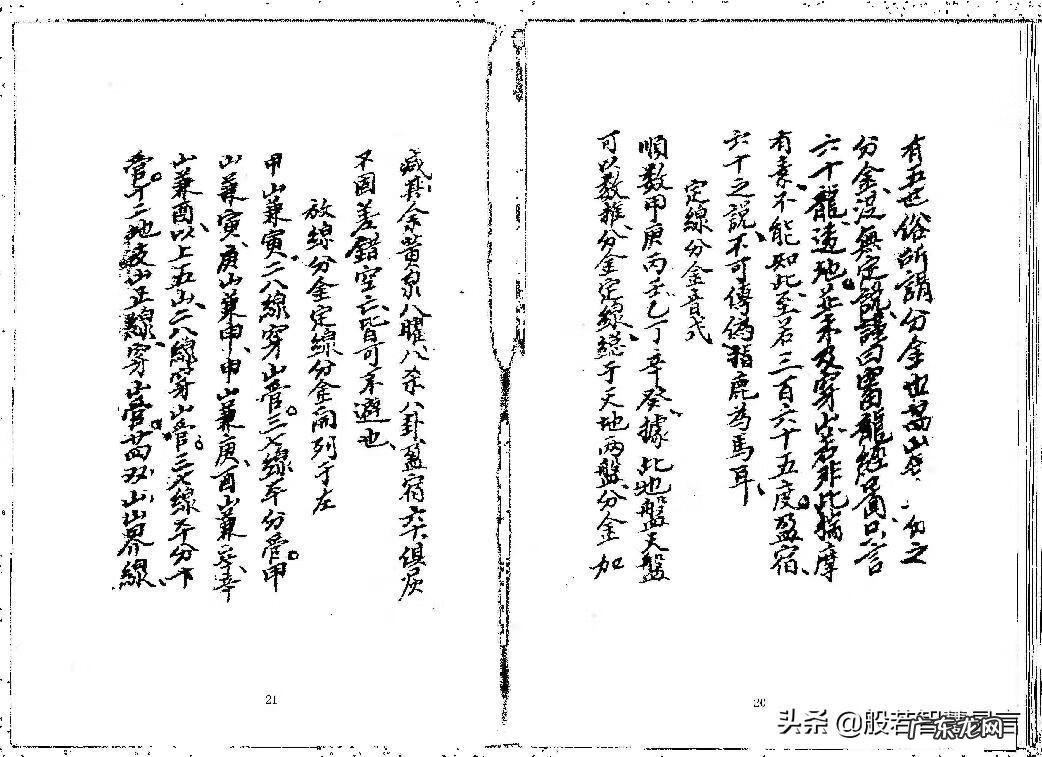 有五世俗所謂分金也葢山
分金沒無定說謹曰雷龍經圖只言
六十龍透地並未及穿山若非比揣摩
有素不能如此至若三百六十五度盈宿
六十之說不可傳偽指鹿為馬耳
定線分金音式
順数甲庚丙壬乙丁辛癸據此地盤天盤
可以数推分金定線總于天地兩盤分金加
20
减其余黄泉八曜八杀八卦盈宿六十俱灰
不因差錯空亡皆可不避也
放線分金定線分金開列于左
甲山兼寅二八線穿山管三七線平分管甲
山兼寅庚山兼申申山兼庚酉山兼辛辛
山兼酉以上五山二八線穿山管三七線平分下
管十二地支山正線穿山管葢双山山界線
21
头条 @般若智慧
广东龙网